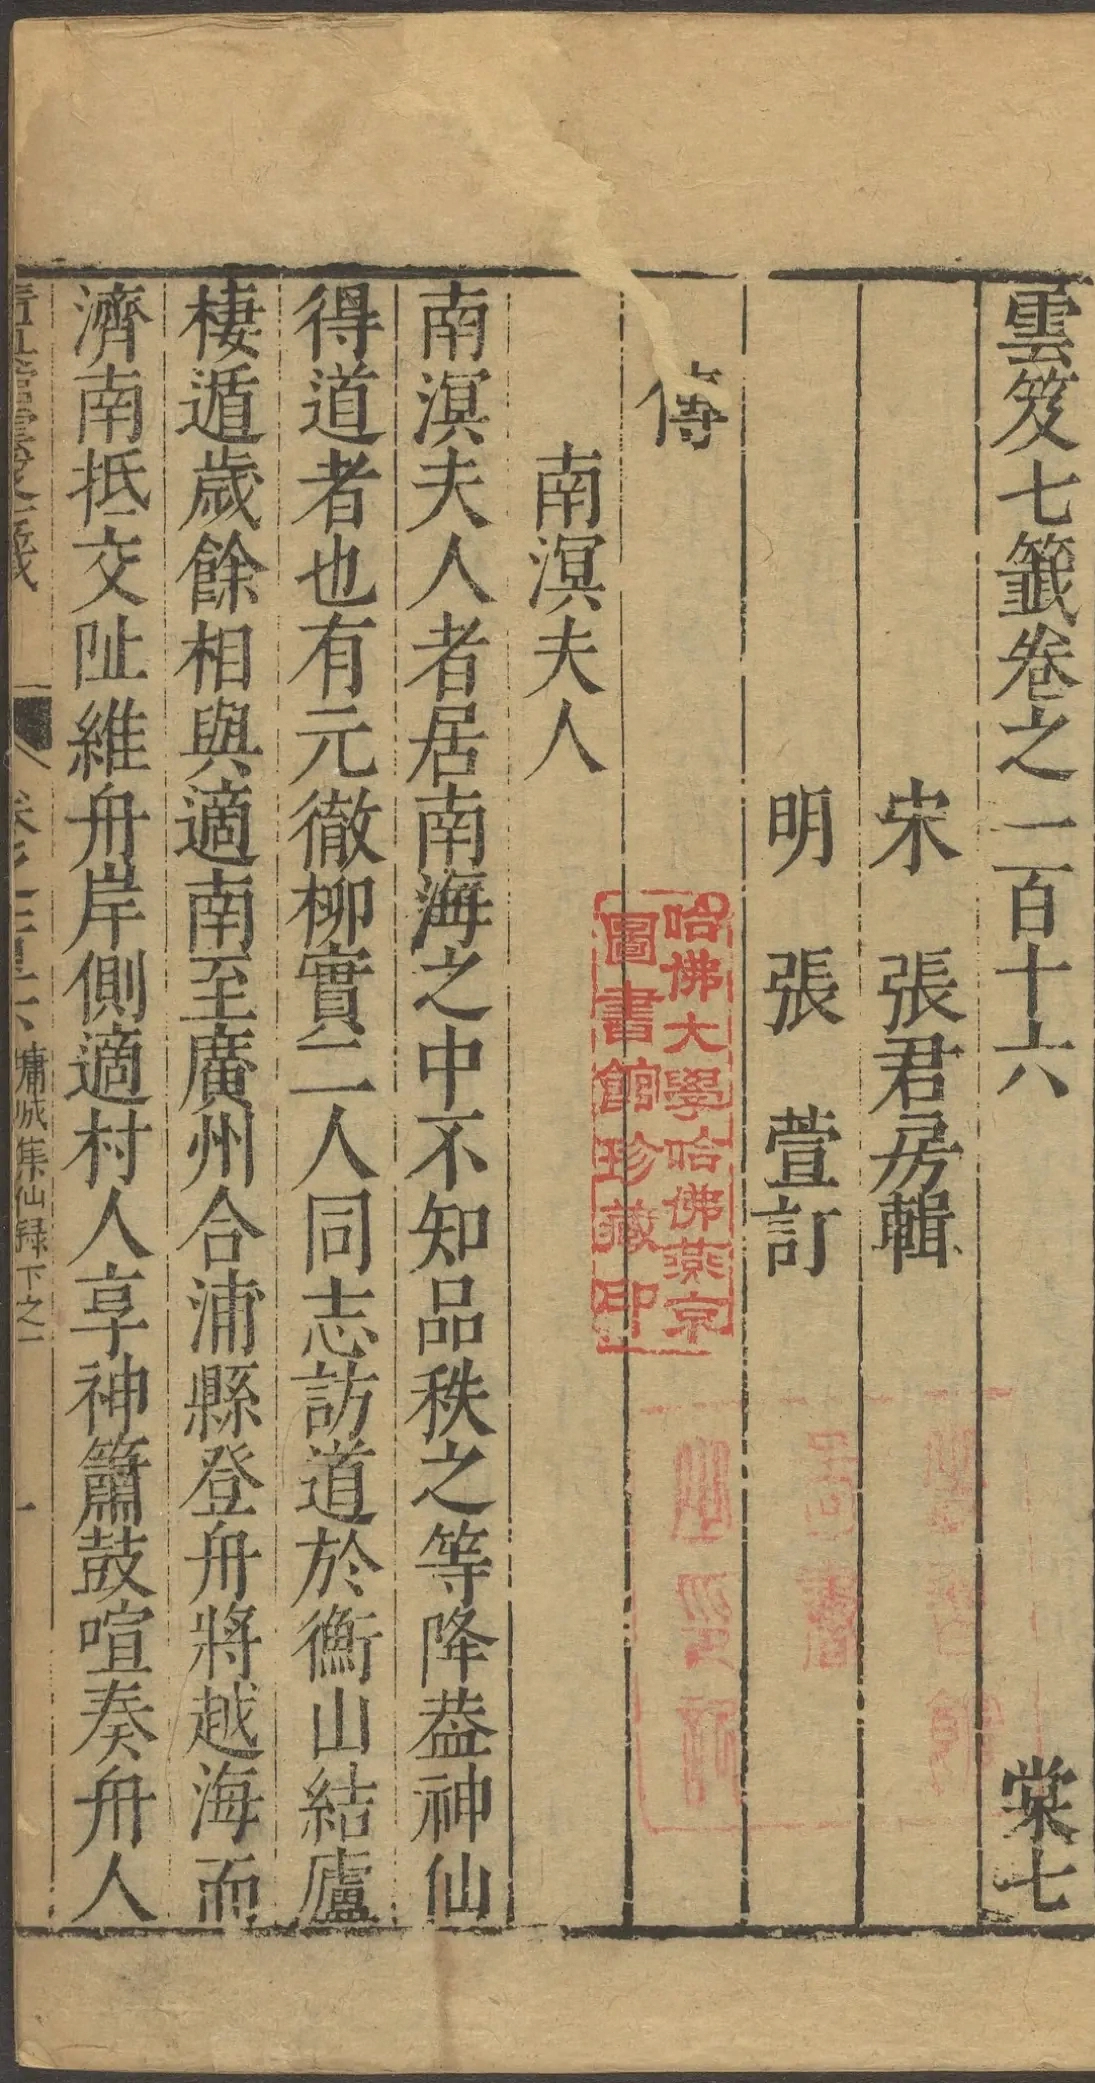 雲笈七籖卷之一百十六 棠七
宋 張君房輯
明 張 萱訂
傳
南溟夫人
南溟夫人者居南海之中不知品秩之等降葢神仙
得道者也有元徹柳實二人同志訪道於衡山結廬
棲遁歲餘相與適南至廣州合浦縣登舟將越海而
濟南抵交阯維舟岸側適村人享神簫鼓喧奏舟人
墉城集仙録下之一
一
哈佛大學哈佛燕京
圖書館珍藏印